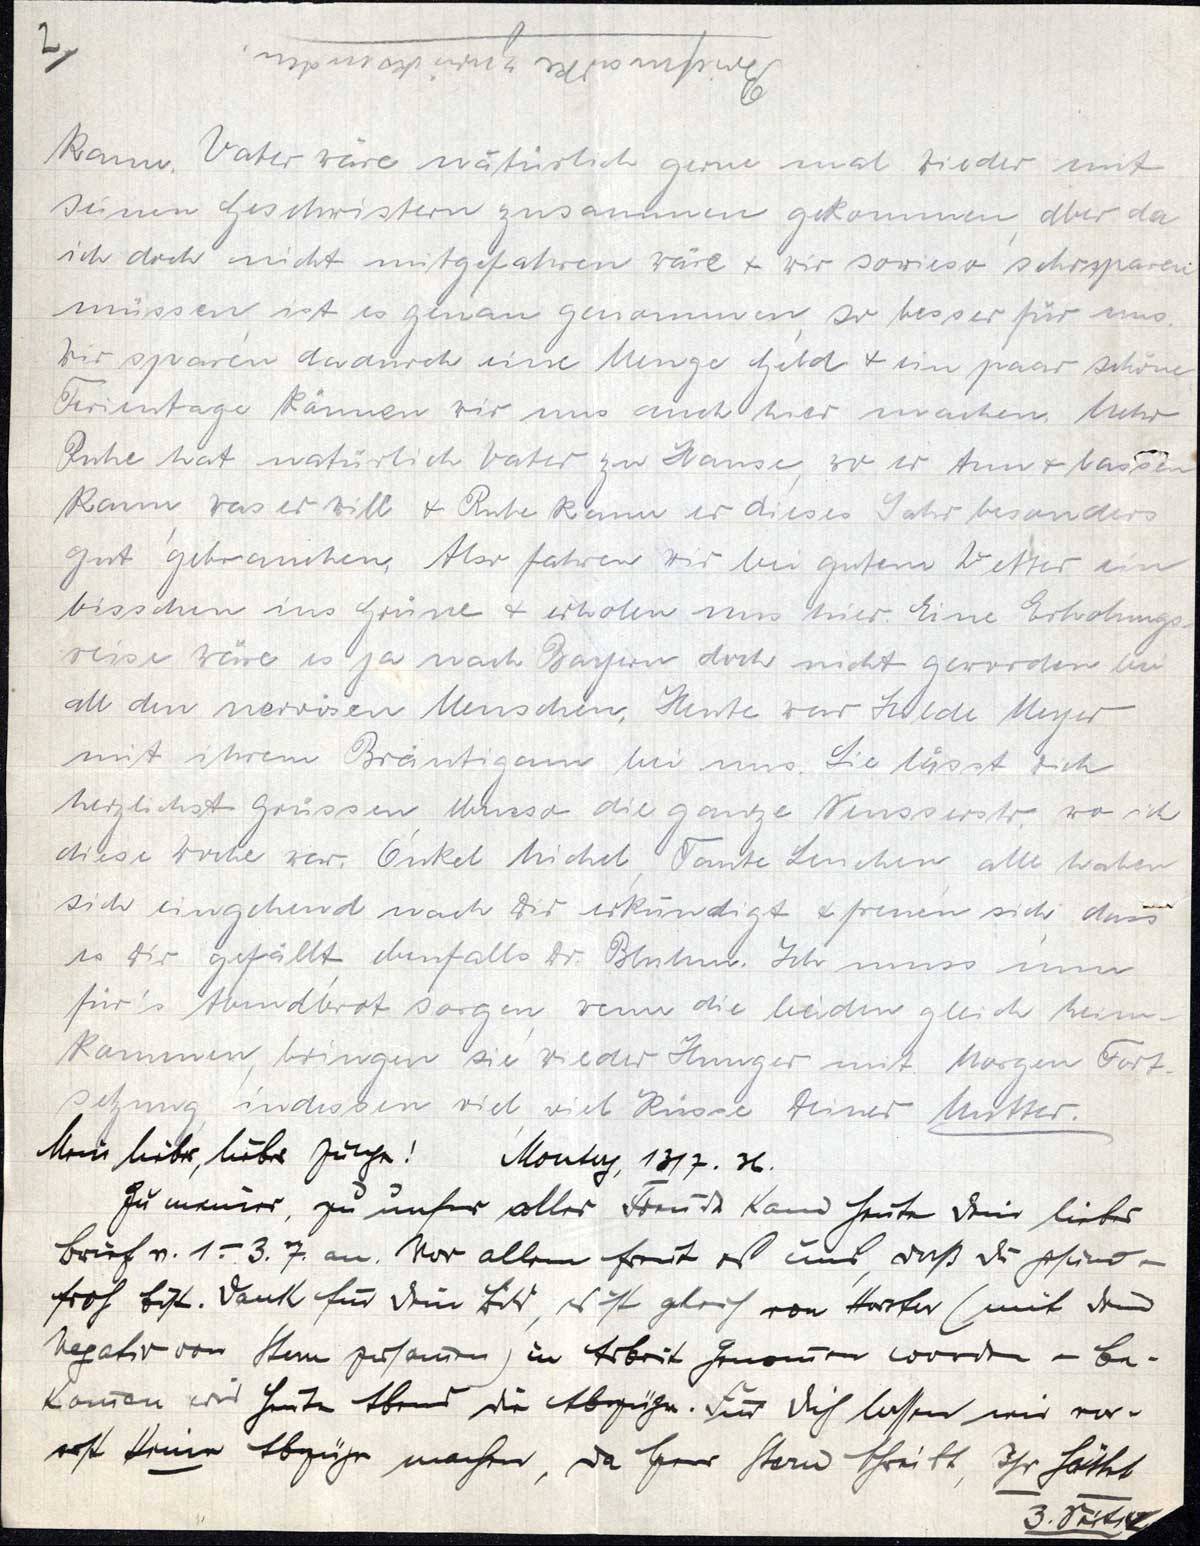 2/
Briefmarke zurücksenden.
kann. Vater wäre natürlich gerne mal wieder mit
seinen Geschwistern zusammen gekommen, aber da
ich doch nicht mitgefahren wäre & wir sowieso sehr sparen
müssen, ist es genau genommen, so besser für uns.
Wir sparen dadurch eine Menge Geld & ein paar schöne
Ferientage können wir uns auch hier machen. Mehr
Ruhe hat natürlich Vater zu Hause, wo er tun & lassen
kann, was er will & Ruhe kann er dieses Jahr besonders
gut gebrauchen. Also fahren wir bei gutem Wetter ein
bisschen ins Grüne & erholen uns hier. Eine Erholungs-
reise wäre es ja nach Bayern doch nicht geworden bei
all den nervösen Menschen. Heute war Hilde Meyer
mit ihrem Bräutigam bei uns. Sie lässt Dich
herzlichst grüssen, ebenso die ganze Neusserstr. wo ich
diese Woche war. Onkel Michel, Tante Lenchen, alle haben
sich eingehend nach Dir erkundigt & freuen sich, dass
es Dir gefällt, ebenfalls Dr. Bluhm. Ich muss nun
für's Abendbrot sorgen, wenn die beiden gleich heim-
kommen, bringen sie wieder Hunger mit. Morgen Fort-
setzung, indessen viel, viel Küsse Deiner Mutter.
Mein lieber, lieber Junge! Montag, 13/7. 36.
Zu meiner, zu unser aller Freude kam heute Dein lieber
Brief v. 1.-3.7. an. Vor allem freut es uns, daß Du gesund -
froh bist. Dank für Dein Bild, es ist gleich von (mit dem
Negativ von Stern zusammen) in Arbeit genommen worden - be-
kommen wir heute Abend die Abzüge. Für Dich lassen wir vor-
erst keine Abzüge machen, da Herr Stern schreibt, Ihr hättet
3. Seite